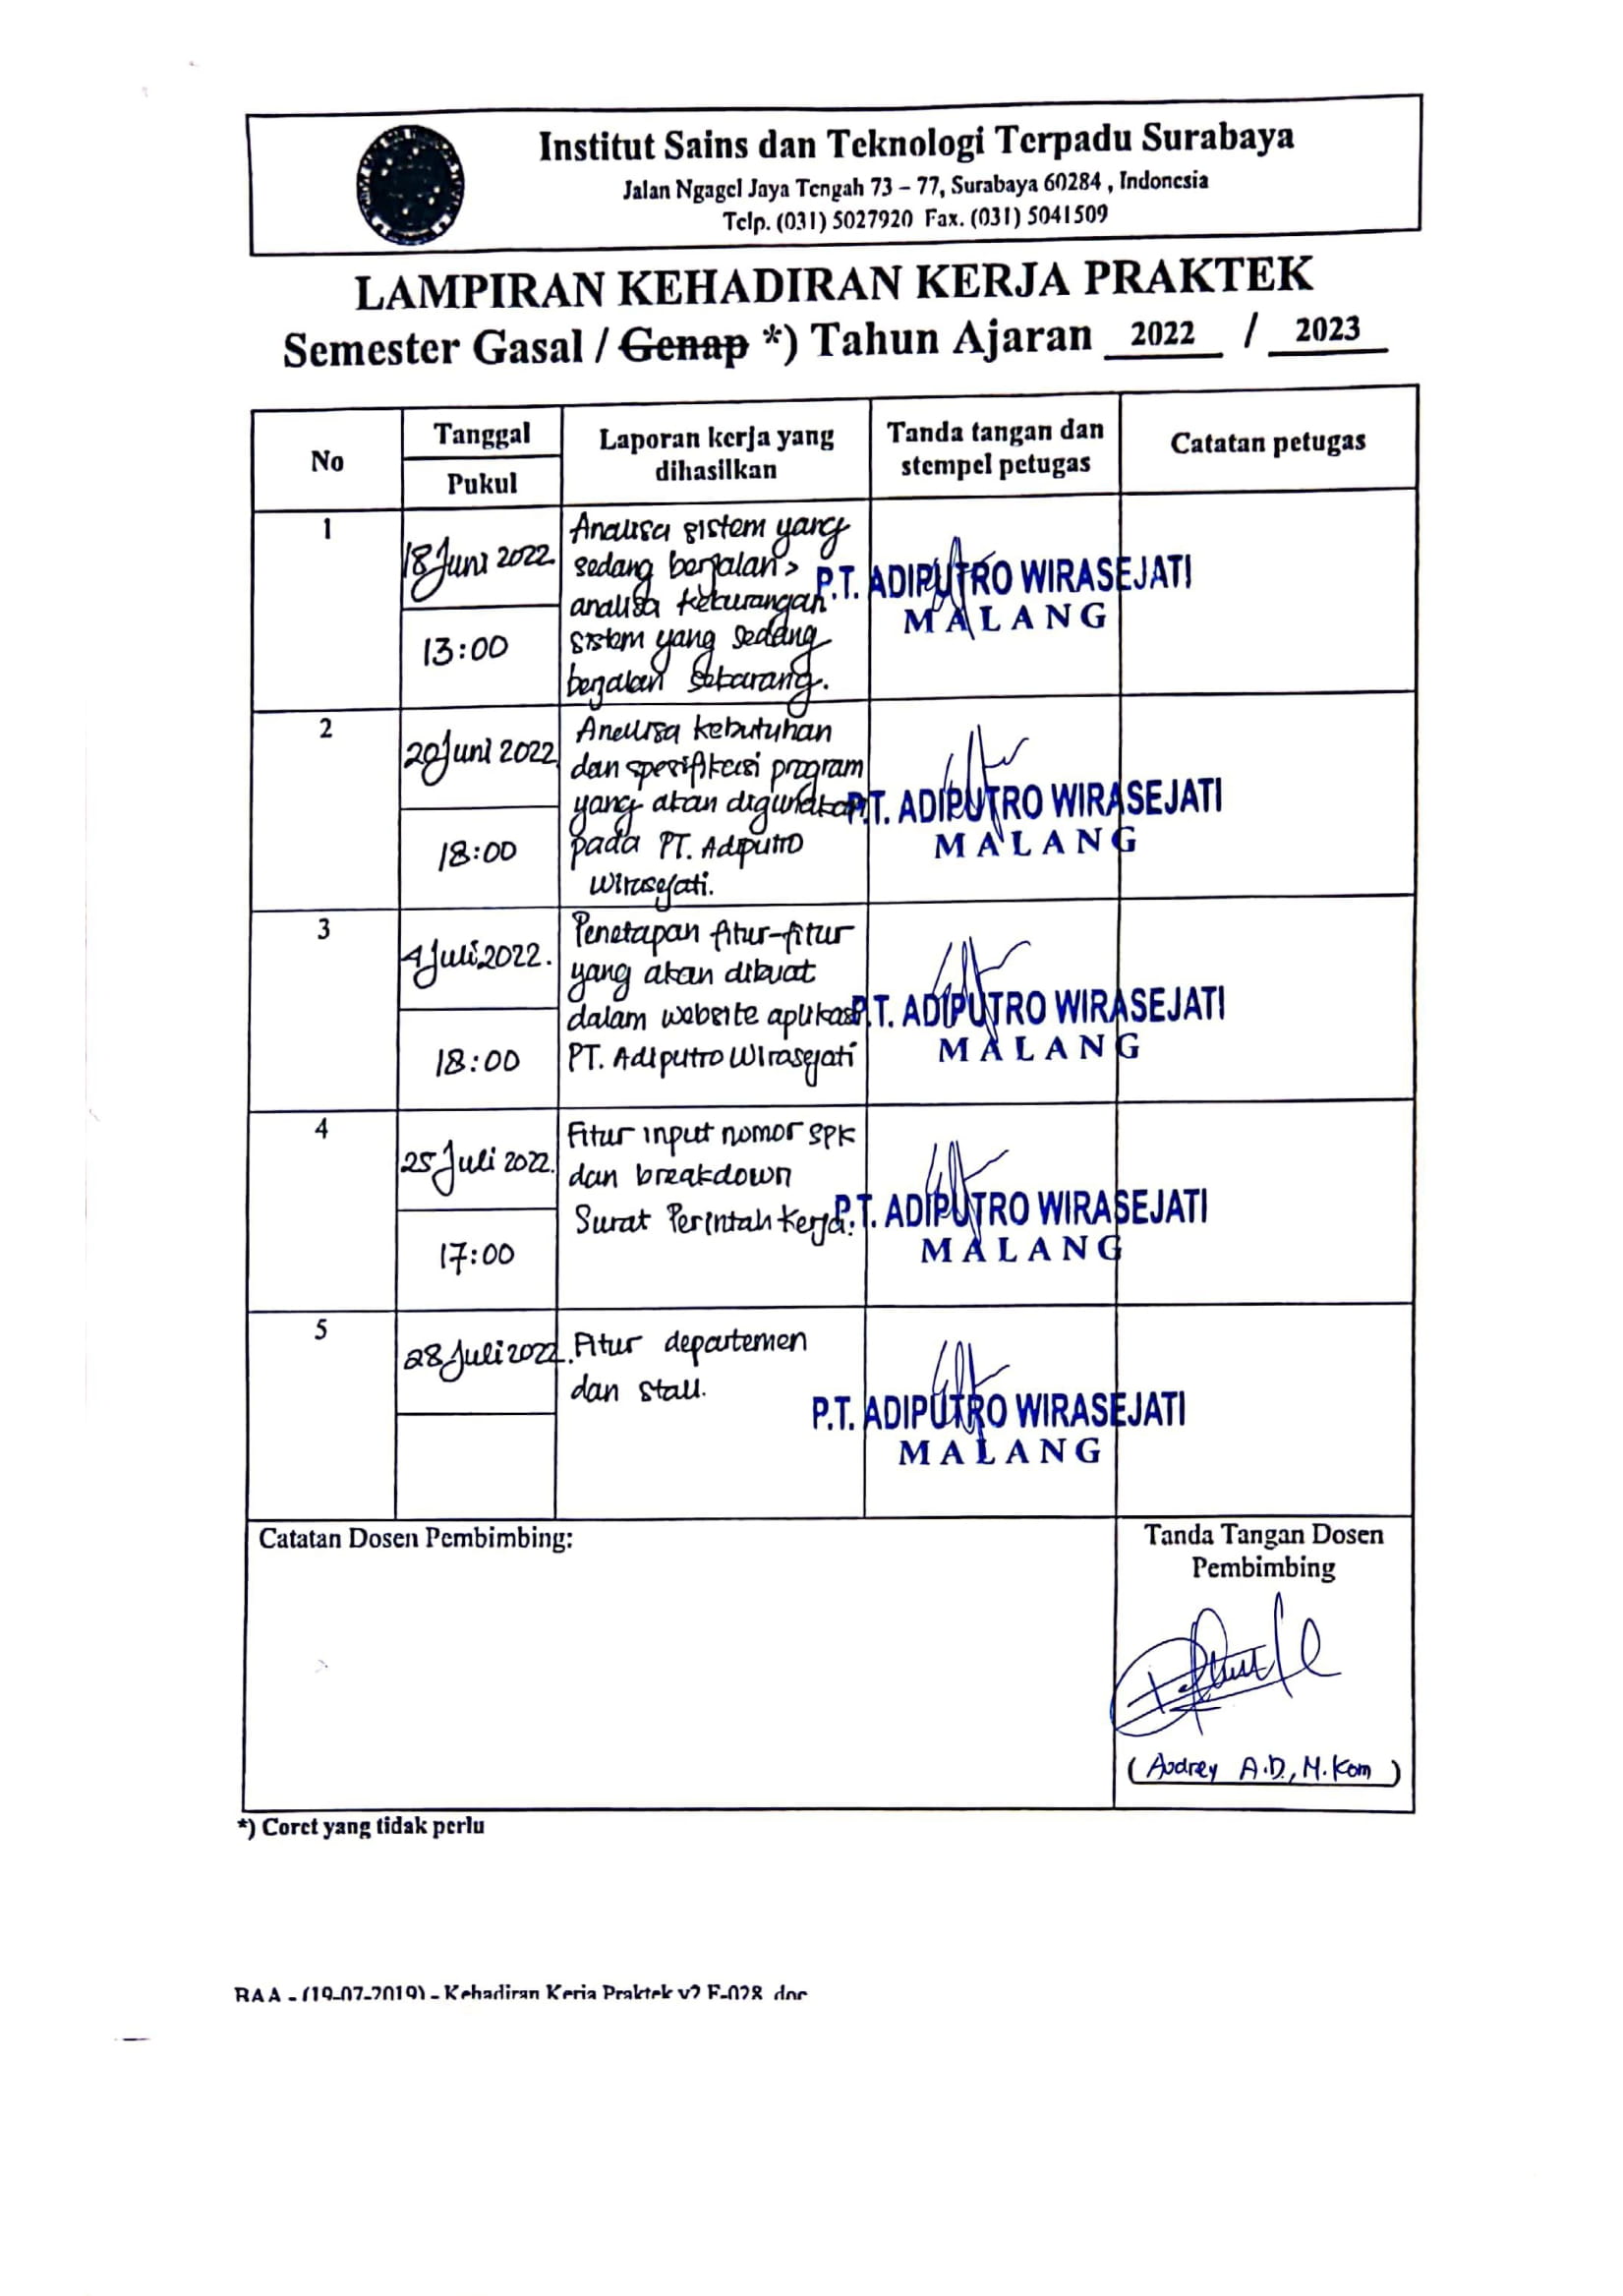 Institut Sains dan Teknologi Terpadu Surabaya
Jalan Ngagel Jaya Tengah 73 – 77, Surabaya 60284 , Indonesia
Telp. (031) 5027920 Fax. (031) 5041509
LAMPIRAN KEHADIRAN KERJA PRAKTEK
Semester Gasal / Genap *) Tahun Ajaran 2022 / 2023
No
Tanggal
Pukul
Laporan kerja yang
dihasilkan
Tanda tangan dan
stempel petugas
Catatan petugas
1
18 Juni 2022
13:00
Analisa sistem yang
sedang berjalan >
analisa kekurangan
sistem yang sedang
berjalan sekarang.
P.T. ADIPUTRO WIRASEJATI
MALANG
2
20 Juni 2022
18:00
Analisa kebutuhan
dan spesifikasi program
yang akan digunakan
pada PT. Adiputro
Wirasejati.
P.T. ADIPUTRO WIRASEJATI
MALANG
3
4 Juli 2022.
18:00
Penetapan fitur-fitur
yang akan dibuat
dalam website aplikasi
PT. Adiputro Wirasejati
P.T. ADIPUTRO WIRASEJATI
MALANG
4
25 Juli 2022.
17:00
Fitur input nomor SPK
dan breakdown
Surat Perintah Kerja.
P.T. ADIPUTRO WIRASEJATI
MALANG
5
28 Juli 2022.
Fitur departemen
dan stall.
P.T. ADIPUTRO WIRASEJATI
MALANG
Catatan Dosen Pembimbing:
Tanda Tangan Dosen
Pembimbing
( Audrey A.D., M.Kom )
*) Coret yang tidak perlu
BAA - (19-07-2019) - Kehadiran Kerja Praktek v2 F-028 .doc